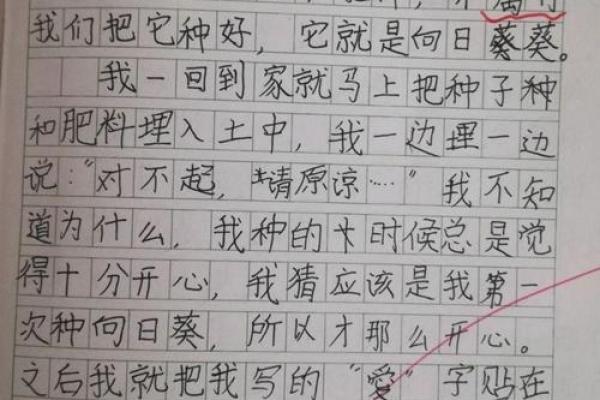 我们把它种好，它就是向日葵葵。
我一回到家就马上把种子种
和肥料埋入土中，我一边埋一边
说："对不起，请原谅……"我不知
道为什么，我种的时候总是觉
得十分开心，我猜应该是我第一
次种向日葵，所以才那么开心。
之后我就把我写的"爱"字贴在